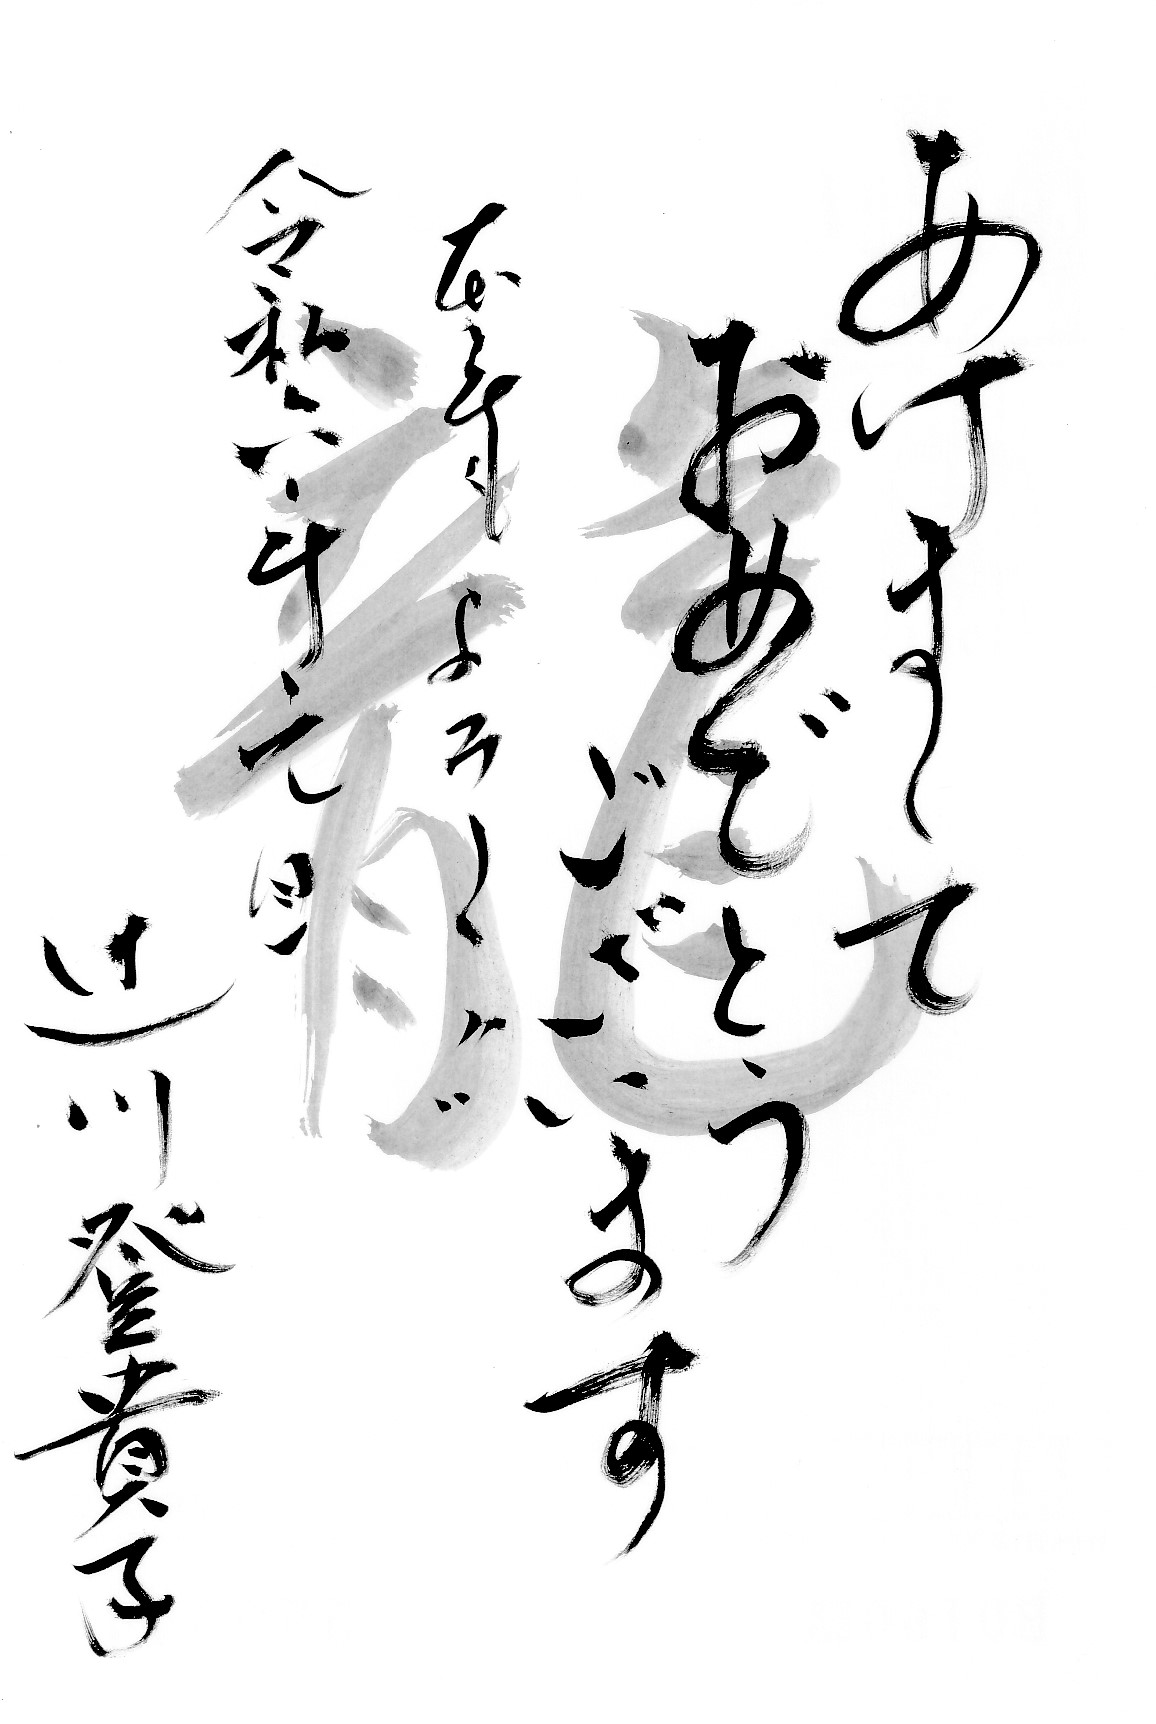 あけまして
おめでとう
ございます
本年もよろしく
令和六年元旦
辻川登貴子
龍